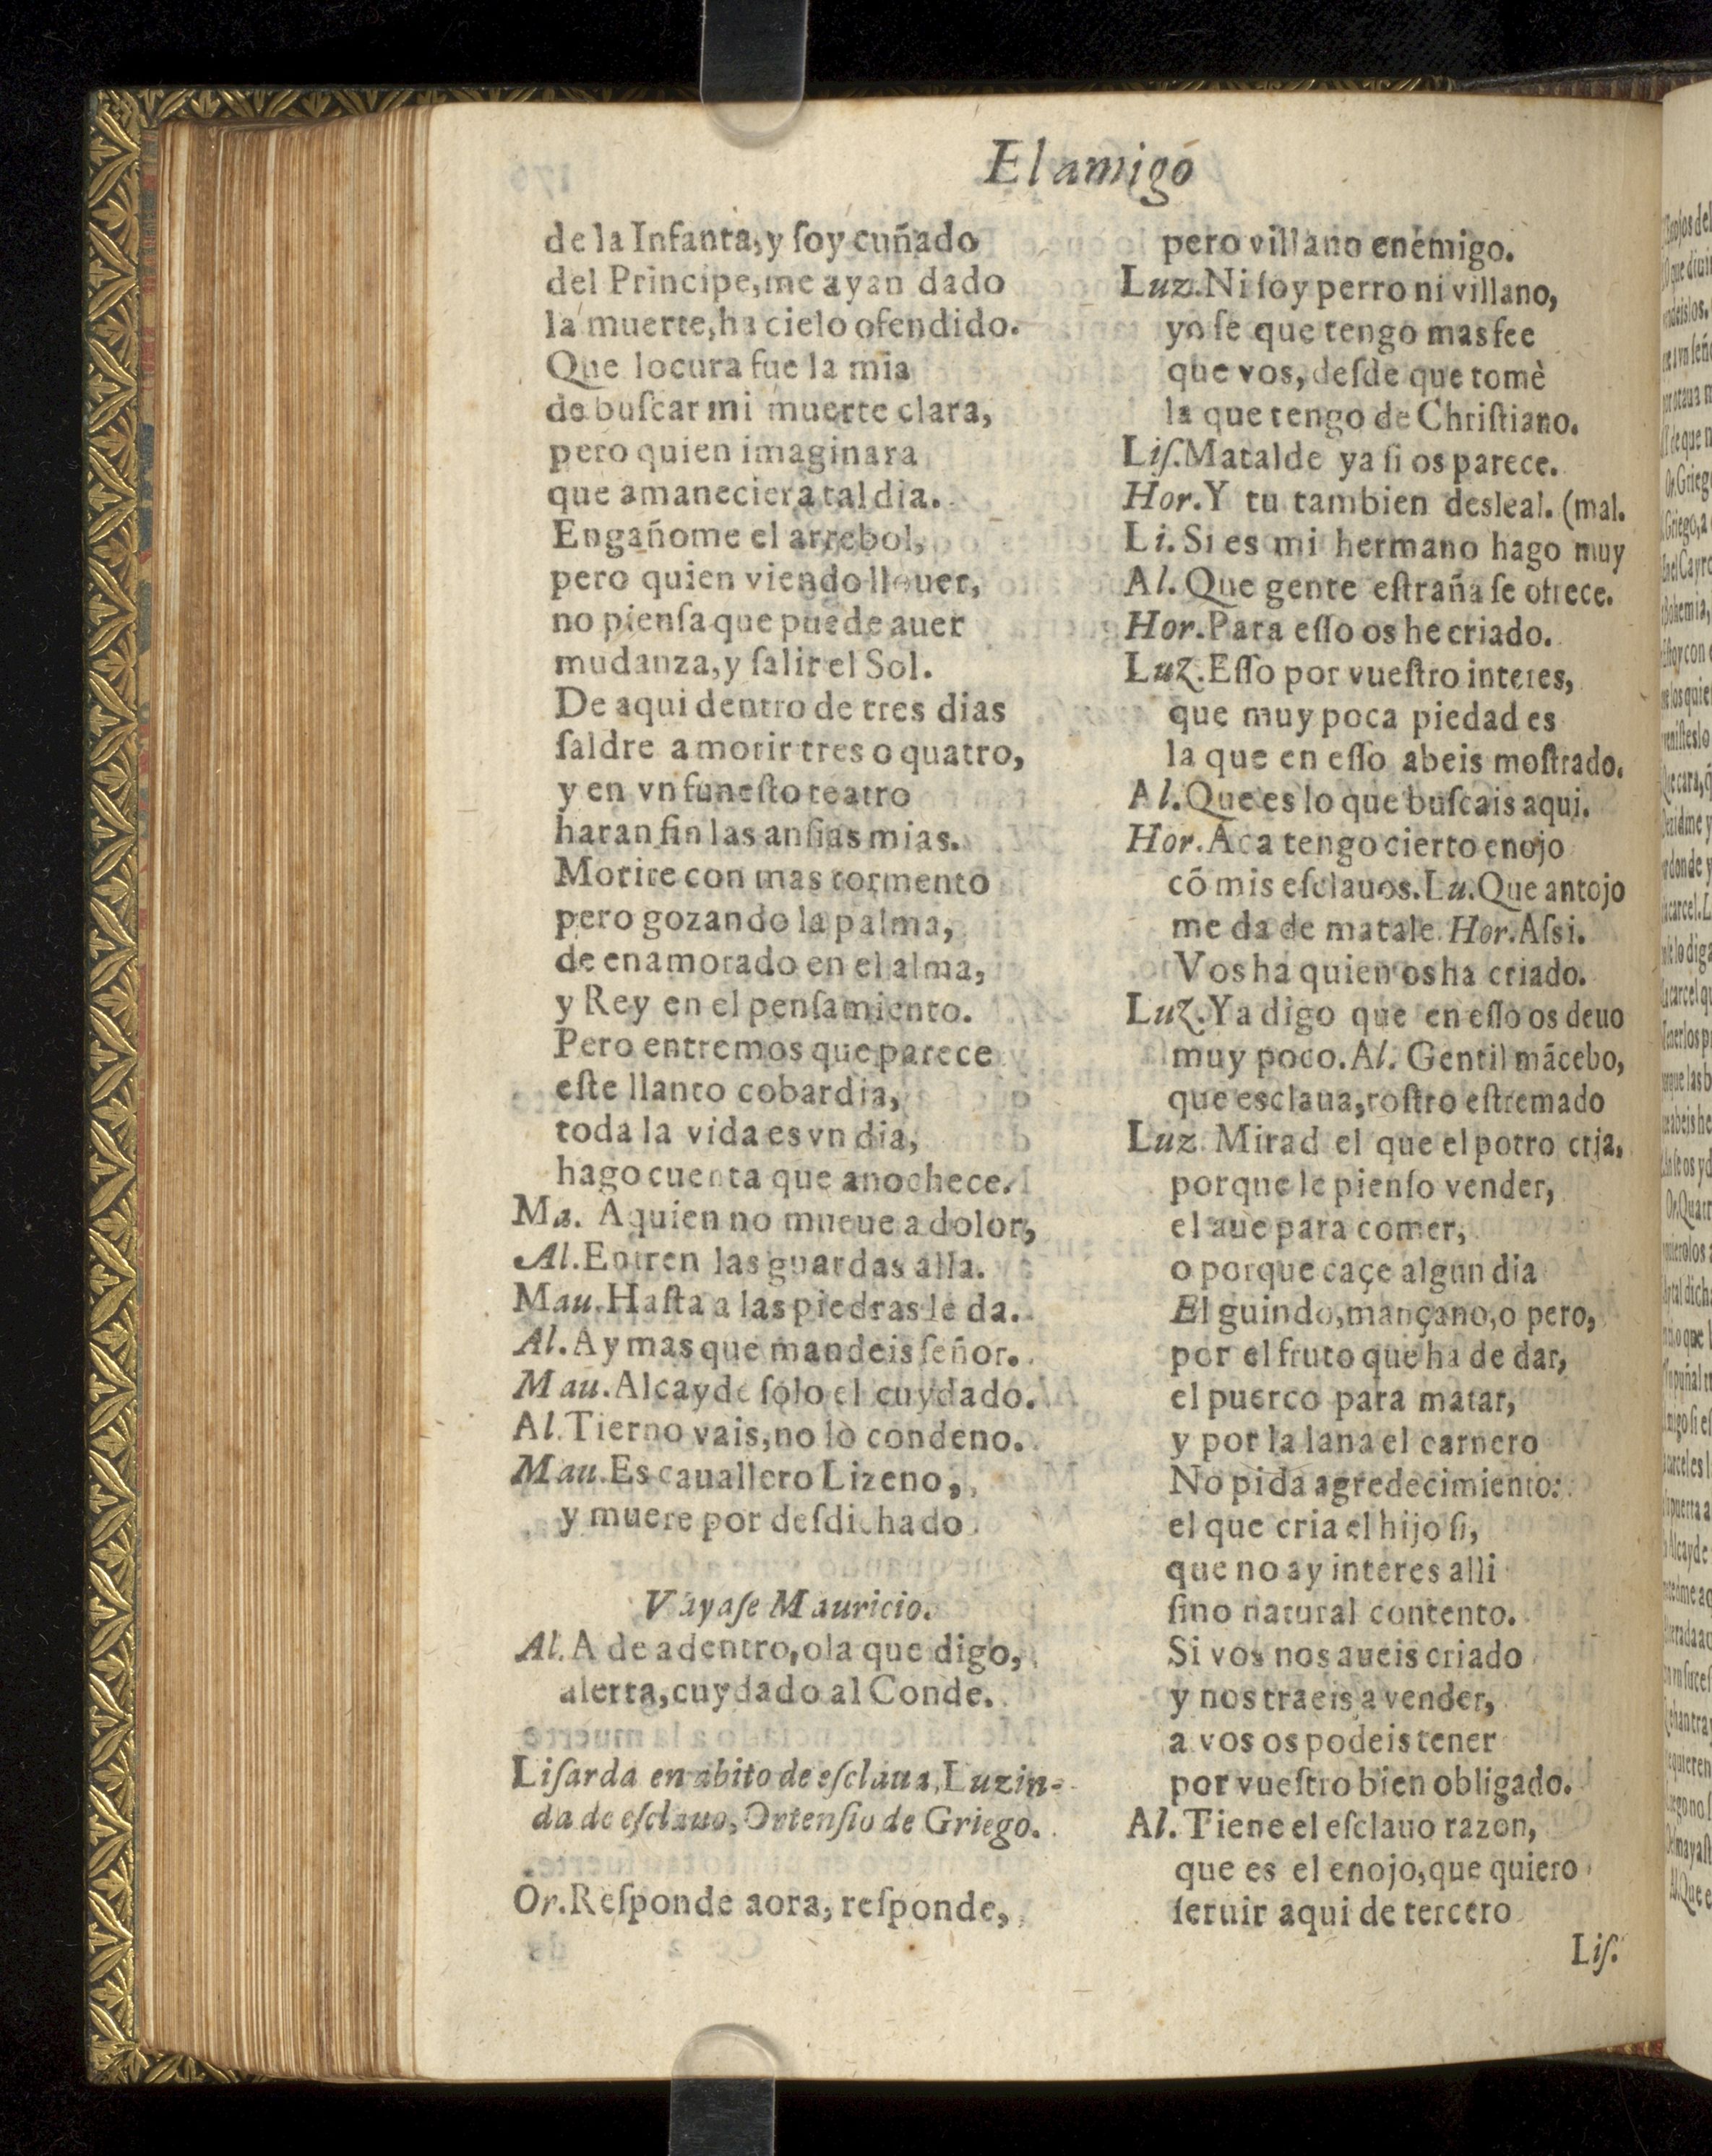 El amigo
de la Infanta, y ſoy cuñado
del Principe, me ayan dado
la muerte, ha cielo ofendido.
Que locura fue la mia
de buſcar mi muerte clara,
pero quien imaginara
que amaneciera tal dia.
Engañome el arrebol,
pero quien viendo llouer,
no pienſa que puede auer
mudanza, y ſalir el Sol.
De aqui dentro de tres dias
ſaldre a morir tres o quatro,
y en vn funeſto teatro
haran fin las anſias mias.
Morire con mas tormento
pero gozando la palma,
de enamorado en el alma,
y Rey en el penſamiento.
Pero entremos que parece
eſte llanto cobardia,
toda la vida es vn dia,
hago cuenta que anochece.
Ma. A quien no mueue a dolor,
Al. Entren las guardas alla.
Mau. Haſta a las piedras le da.
Al. Ay mas que mandeis ſeñor.
Mau. Alcayde ſolo el cuydado.
Al. Tierno vais, no lo condeno.
Mau. Es cauallero Lizeno,
y muere por deſdichado
Vayaſe Mauricio.
Al. A de adentro, ola que digo,
alerta, cuydado al Conde.
Liſarda en abito de eſclaua, Luzin-
da de eſclauo, Ortenſio de Griego.
Or. Reſponde aora, reſponde,
pero villano enemigo.
Luz. Ni ſoy perro ni villano,
yo ſe que tengo mas fee
que vos, deſde que tomè
la que tengo de Chriſtiano.
Liſ. Matalde ya ſi os parece.
Hor. Y tu tambien desleal. (mal.
Li. Si es mi hermano hago muy
Al. Que gente eſtraña ſe ofrece.
Hor. Para eſſo os he criado.
Luz. Eſſo por vueſtro interes,
que muy poca piedad es
la que en eſſo abeis moſtrado.
Al. Que es lo que buſcais aqui.
Hor. Aca tengo cierto enojo
cõ mis eſclauos. Lu. Que antojo
me da de matale. Hor. Aſsi.
Vos ha quien os ha criado.
Luz. Ya digo que en eſſo os deuo
muy poco. Al. Gentil mãcebo,
que esclaua, roſtro eſtremado
Luz. Mirad el que el potro cria,
porque le pienſo vender,
el aue para comer,
o porque caçe algun dia
El guindo, mançano, o pero,
por el fruto que ha de dar,
el puerco para matar,
y por la lana el carnero
No pida agredecimiento:
el que cria el hijo ſi,
que no ay interes alli
ſino natural contento.
Si vos nos aueis criado
y nos traeis a vender,
a vos os podeis tener
por vueſtro bien obligado.
Al. Tiene el eſclauo razon,
que es el enojo, que quiero
ſeruir aqui de tercero
Liſ.